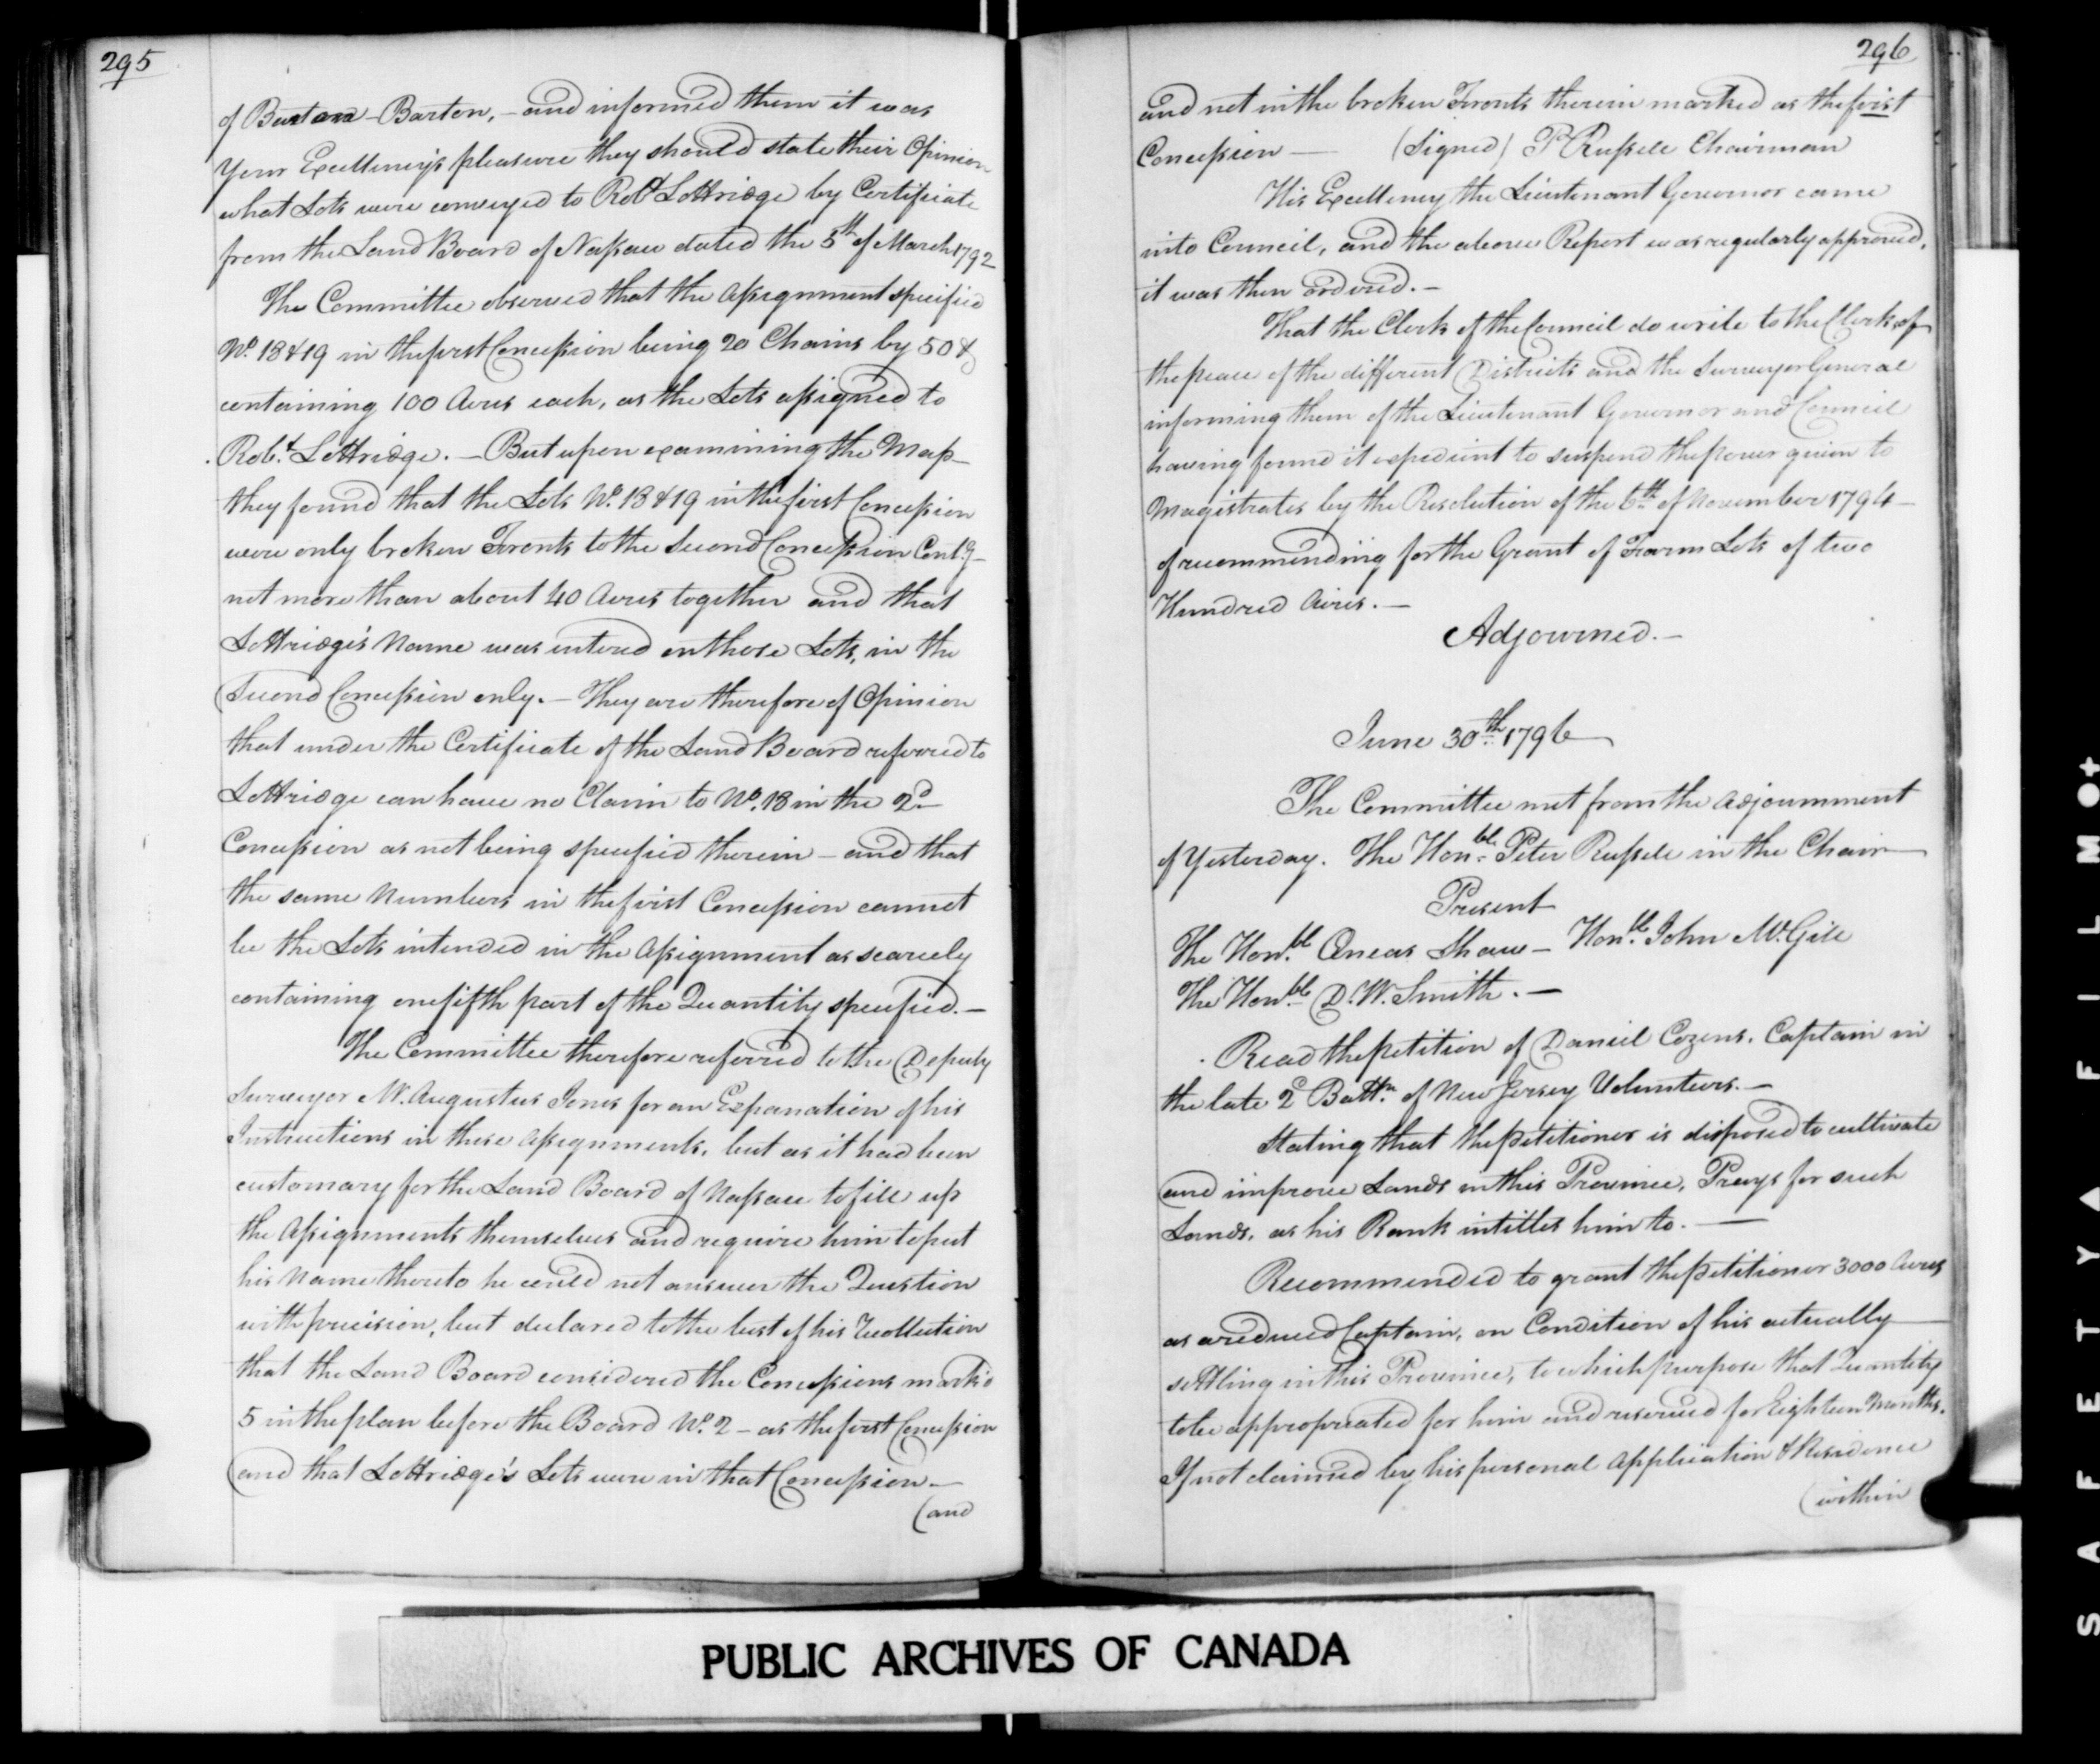 295
of Bartona - Barton, - and informed them it was
Your Excellency's pleasure they should state their Opinion
what Lots were conveyed to Robt Lottridge by Certificate
from the Land Board of Nassau dated the 5th of March 1792
The Committee observed that the Assignment specified
No. 18 & 19 in the first Concession being 20 Chains by 50 &
containing 100 Acres each, as the Lots assigned to
Robt. Lottridge. - But upon examining the Map
they found that the Lots No. 18 & 19 in the first Concession
were only broken Fronts to the Second Concession Contg.
not more than about 40 Acres together and that
Lottridge's Name was entered on those Lots, in the
Second Concession only. - They are therefore of Opinion
that under the Certificate of the Land Board referred to
Lottridge can have no Claim to No. 18 in the 2d
Concession as not being specified therein - and that
the same Numbers in the first Concession cannot
be the Lots intended in the Assignment as scarcely
containing one fifth part of the Quantity specified. -
The Committee therefore referred to the Deputy
Surveyor Mr. Augustus Jones for an Expanation of his
Instructions in these Assignments, but as it had been
customary for the Land Board of Nassau to fill up
the Assignments themselves and require him to put
his Name thereto he could not answer the Question
with precision, but declared to the best of his Recollection
that the Land Board considered the Concessions mark'd
5 in the plan before the Board No. 2 - as the first Concession
and that Lottridge's Lots were in that Concession -
(and
296
and not in the broken Fronts therein marked as the first
Concession - (Signed) P Russell Chairman
His Excellency the Lieutenant Governor came
into Council, and the above Report was regularly approved,
it was then ordered. -
That the Clerk of the Council do write to the Clerks of
the peace of the different Districts and the Surveyor General
informing them of the Lieutenant Governor and Council
having found it expedient to suspend the power given to
Magistrates by the Resolution of the 6th of November 1794
of recommending for the Grant of Farm Lots of two
Hundred Acres. -
Adjourned. -
June 30th 1796
The Committee met from the Adjournment
of Yesterday. The Honble. Peter Russell in the Chair
Present
The Honble. Æneas Shaw - Honble. John McGill
The Honble. D. W. Smith. -
Read the petition of Daniel Cozens. Captain in
the late 2d Battn. of New Jersey Volunteers. -
Stating that the petitioner is disposed to cultivate
and improve Lands in this Province, Prays for such
Lands, as his Rank intitles him to. -
Recommended to grant the petitioner 3000 Acres
as a reduced Captain, on Condition of his actually
settling in this Province, to which purpose that Quantity
to be appropriated for him and reserved for Eighteen Months.
If not claimed by his personal Application & Residence
(within
PUBLIC ARCHIVES OF CANADA
SAFETY▲FILM●+